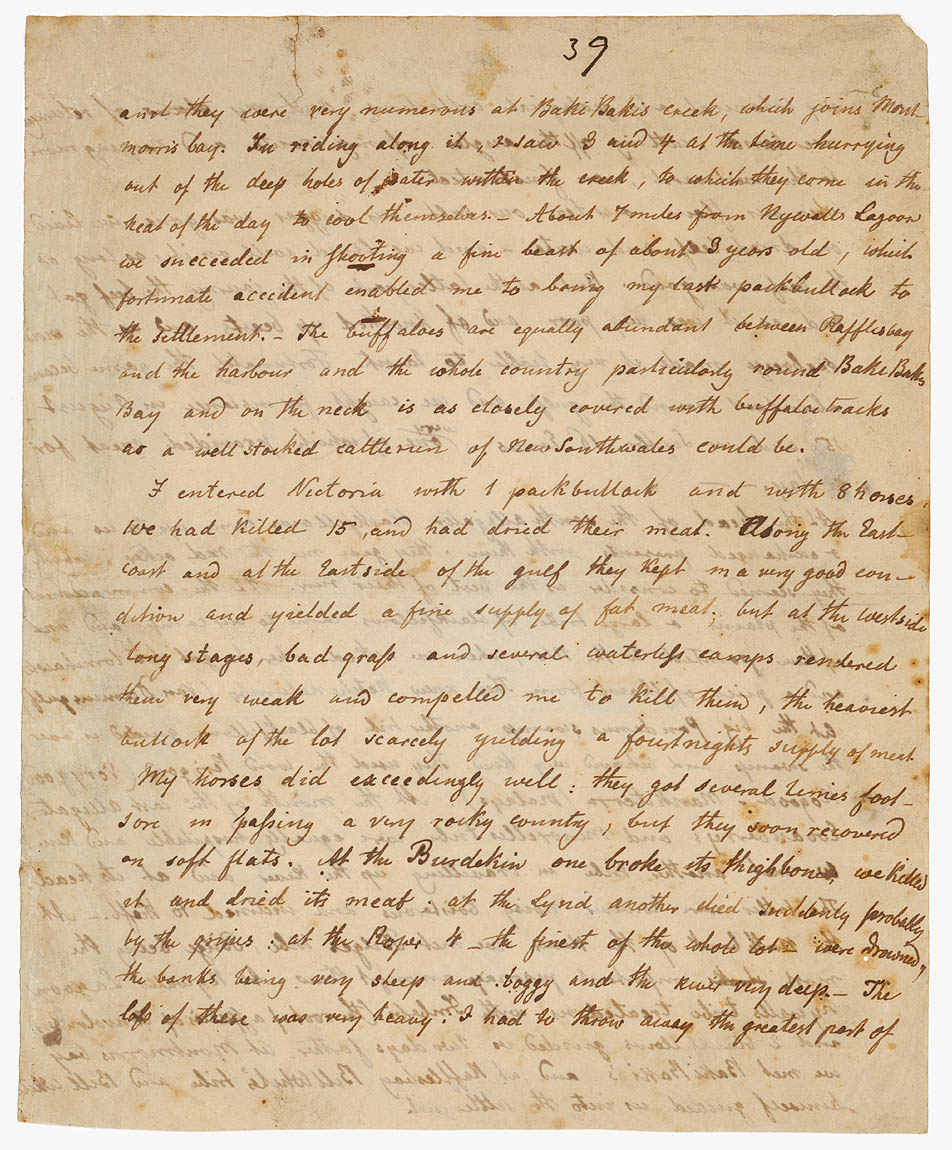 39
and they were very numerous at Baki Bakis creek, which joins Mont-
morris bay. In riding along it, I saw 3 and 4 at the time hurrying
out of the deep holes of water within the creek, to which they come in the
heat of the day to cool themselves. - About 7 miles from Nywalls Lagoon
we succeeded in shooting a fine beast of about 3 years old, which
fortunate accident enabled me to bring my last packbullock to
the settlement. - The buffaloes are equally abundant between Rafflesbay
and the harbour and the whole country particularly round Baki Bakis
Bay and on the neck is as closely covered with buffaloetracks
as a well stocked cattlerun of New Southwales could be.
I entered Victoria with 1 packbullock and with 8 horses.
We had killed 15, and had dried their meat. Along the East-
coast and at the Eastside of the gulf they kept in a very good con-
dition and yielded a fine supply of fat meat; but at the westside
long stages, bad grass and several waterless camps rendered
them very weak and compelled me to kill them, the heaviest
bullock of the lot scarcely yielding a fourtnights supply of meat
My horses did exceedingly well: they got several times foot-
sore in passing a very rocky country, but they soon recovered
on soft flats. At the Burdekin one broke its thighbone, we killed
it and dried its meat: at the Lynd another died suddenly probally
by the gripes: at the Roper 4 - the finest of the whole lot - were drowned,
the banks being very steep and boggy and the river very deep. - The
loss of these was very heavy: I had to throw away the greatest part of